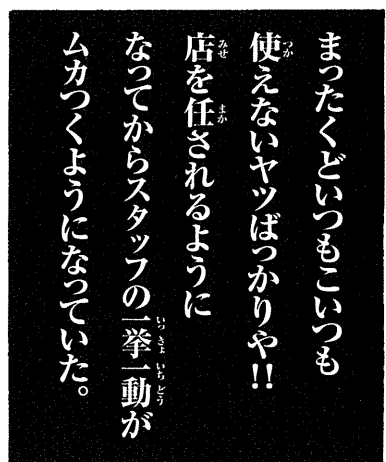 まったくどいつもこいつも
使えないヤツばっかりや!!
店を任されるように
なってからスタッフの一挙一動が
ムカつくようになっていた。